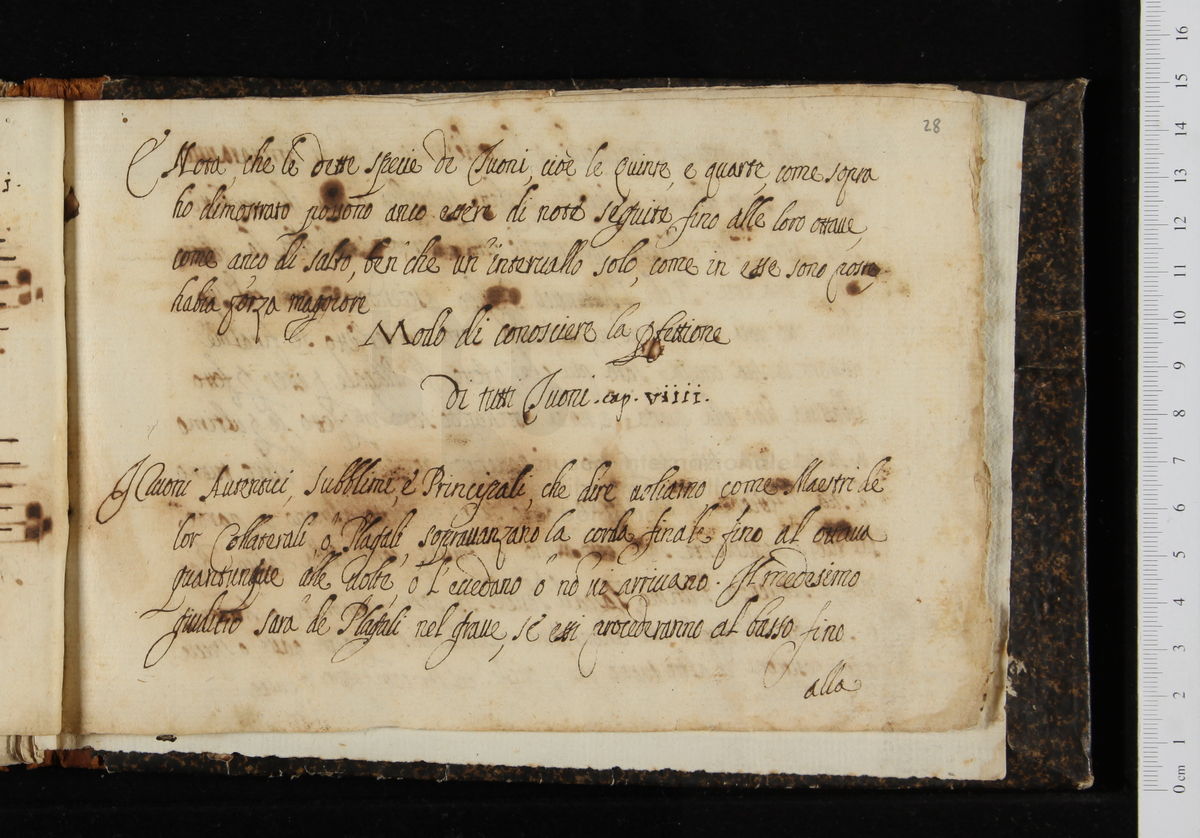 28
E Nota, che le dette specie de Tuoni, cioè le quinte, e quarte, come sopra
ho dimostrato possono anco essere di note seguite fino alle loro ottaue,
come anco di salto, ben che un'interuallo solo, come in esse sono poste
habia forza maggiore
Modo di conosciere la pfettione
Di tutti Tuoni . cap. viiii.
I Tuoni Autentici, subblimi, è Principali, che dire uoliamo come Maestri de
lor Collaterali, ò Plagali, sopravanzano la corda finale fino al ottaua
quantunque alle uolte, ò l'eccedano ò nō ue arriuano. Il medesimo
giuditio sarà de Plagali nel graue, se essi procederanno al basso fino
alla
i.
16
15
14
13
12
11
10
9
8
7
6
5
4
3
2
1
0 cm